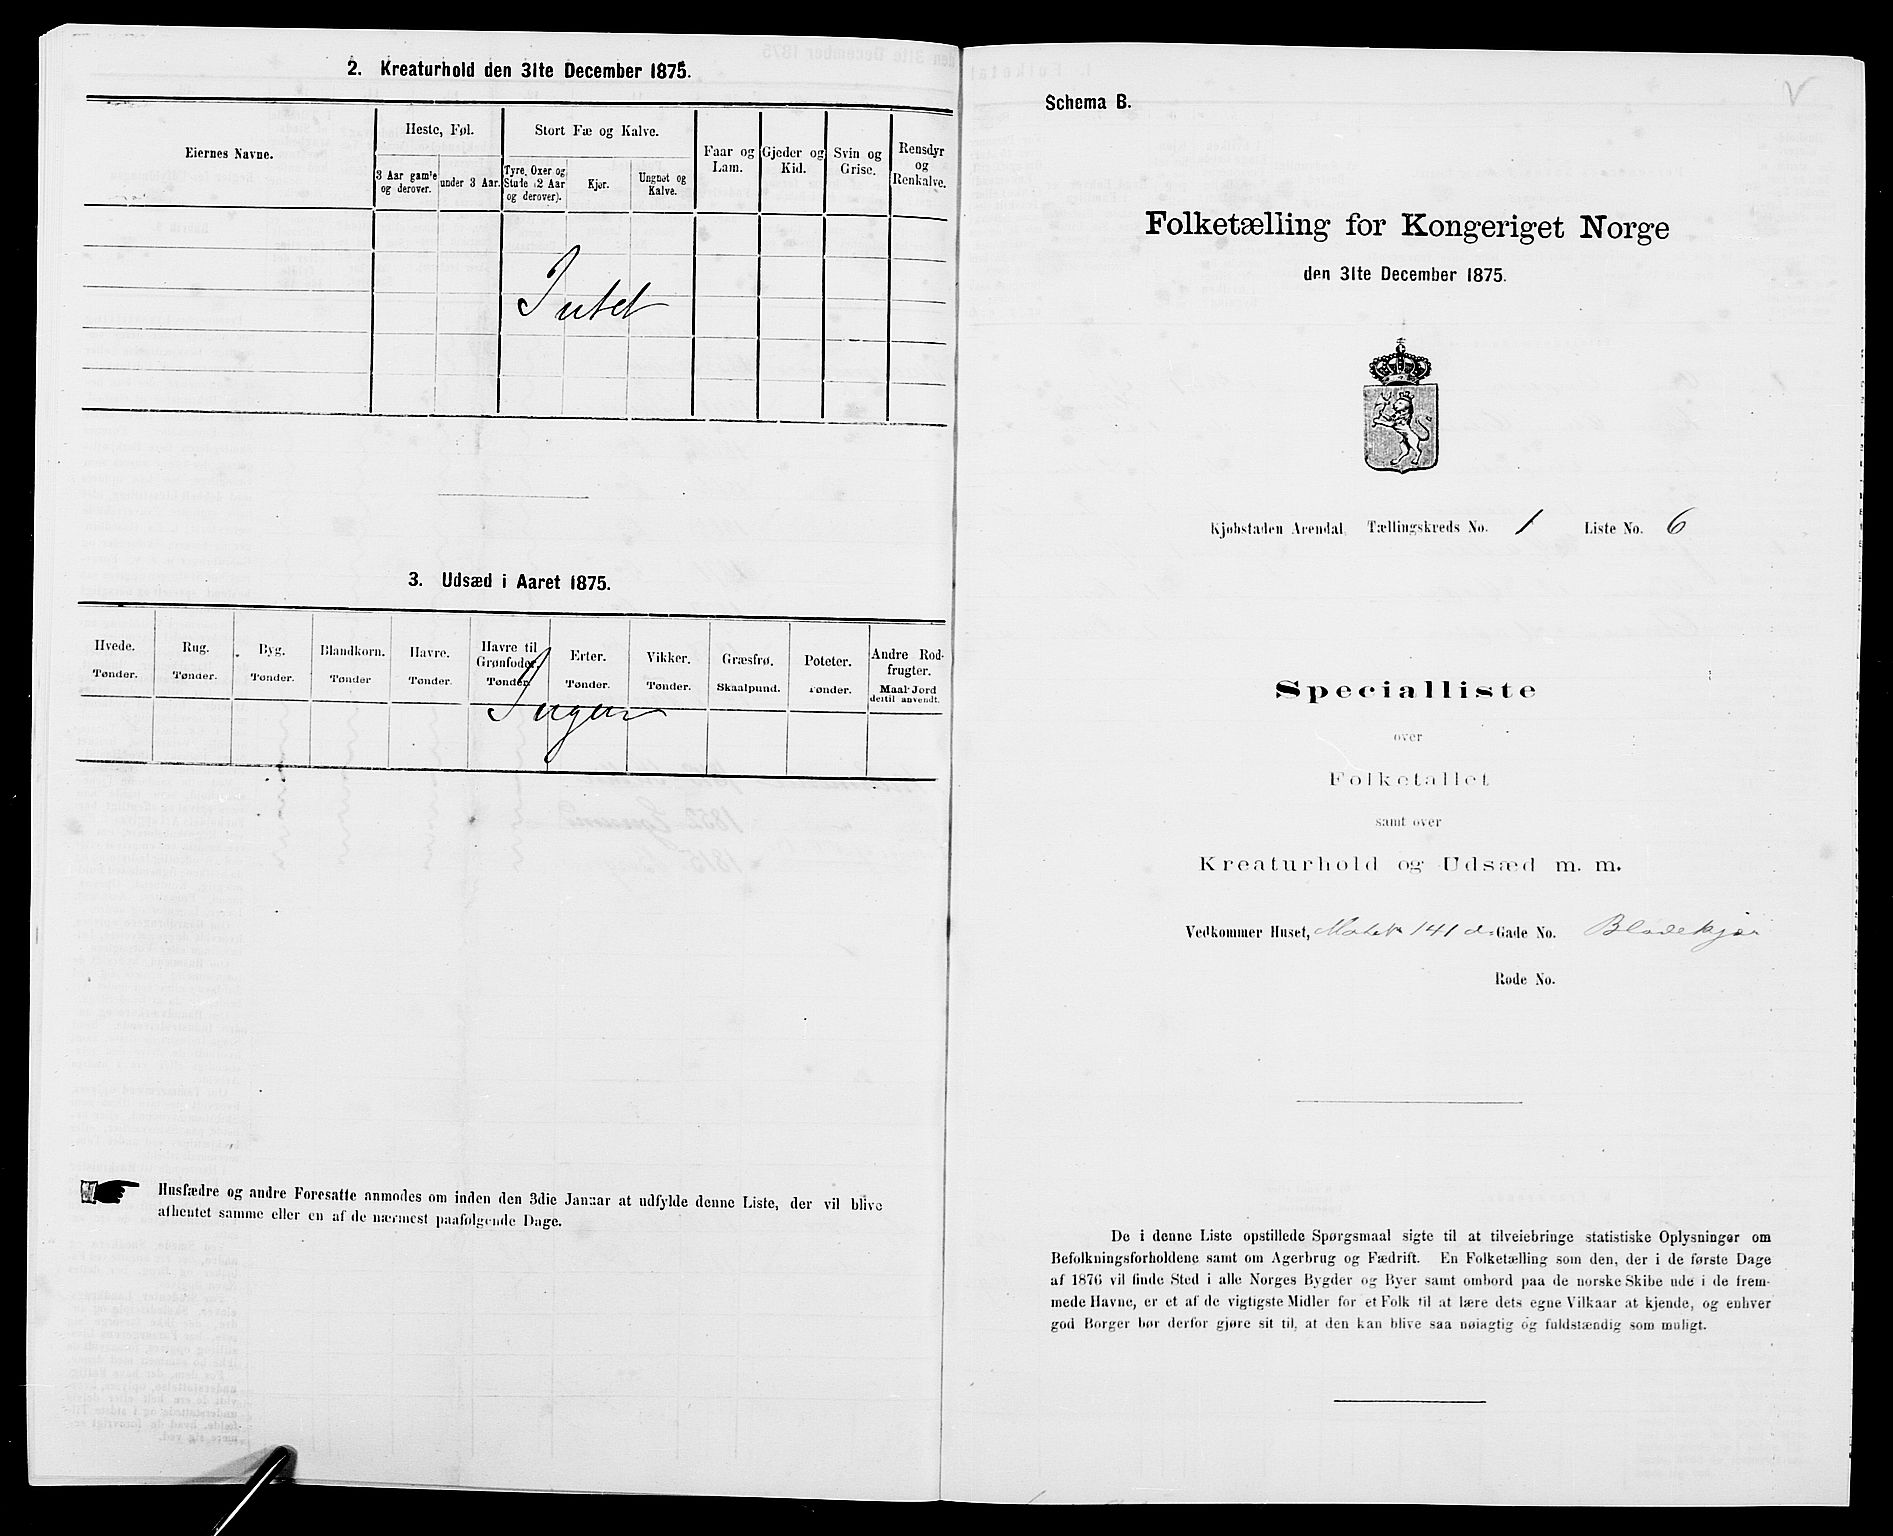 2. Kreaturhold den 31te December 1875.
Eiernes Navne.
Heste, Føl.
Stort Fæ og Kalve.
Faar og Lam.
Gjeder og Kid.
Svin og Grise.
Rensdyr og Renkalve.
3 Aar gamle og derover.
under 3 Aar.
Tyre, Oxer og Stude (2 Aar og derover).
Kjør.
Ungnøt og Kalve.
Intet
3. Udsæd i Aaret 1875.
Hvede.
Rug.
Byg.
Blandkorn.
Havre.
Havre til Grønfoder.
Erter.
Vikker.
Græsfrø.
Poteter.
Andre Rodfrugter.
Tønder.
Tønder.
Tønder.
Tønder
Tønder.
Tønder.
Tønder.
Tønder.
Skaalpund.
Tønder.
Maal Jord dertil anvendt.
Ingen
Husfædre og andre Foresatte anmodes om inden den 3die Januar at udfylde denne Liste, der vil blive
afhentet samme eller en af de nærmest paafølgende Dage.
Schema B.
V
Folketælling for Kongeriget Norge
den 31te December 1875.
Kjøbstaden Arendal, Tællingskreds No. 1 Liste No. 6
Specialliste
over
Folketallet
samt over
Kreaturhold og Udsæd m. m.
Vedkommer Huset, Matr 141 d. Gade No. Blødekjær
Rode No.
De i denne Liste opstillede Spørgsmaal sigte til at tilveiebringe statistiske Oplysninger om
Befolkningsforholdene samt om Agerbrug og Fædrift. En Folketælling som den, der i de første Dage
af 1876 vil finde Sted i alle Norges Bygder og Byer samt ombord paa de norske Skibe ude i de frem-
mede Havne, er et af de vigtigste Midler for et Folk til at lære dets egne Vilkaar at kjende, og enhver
god Borger bør derfor gjøre sit til, at den kan blive saa nøiagtig og fuldstændig som muligt.